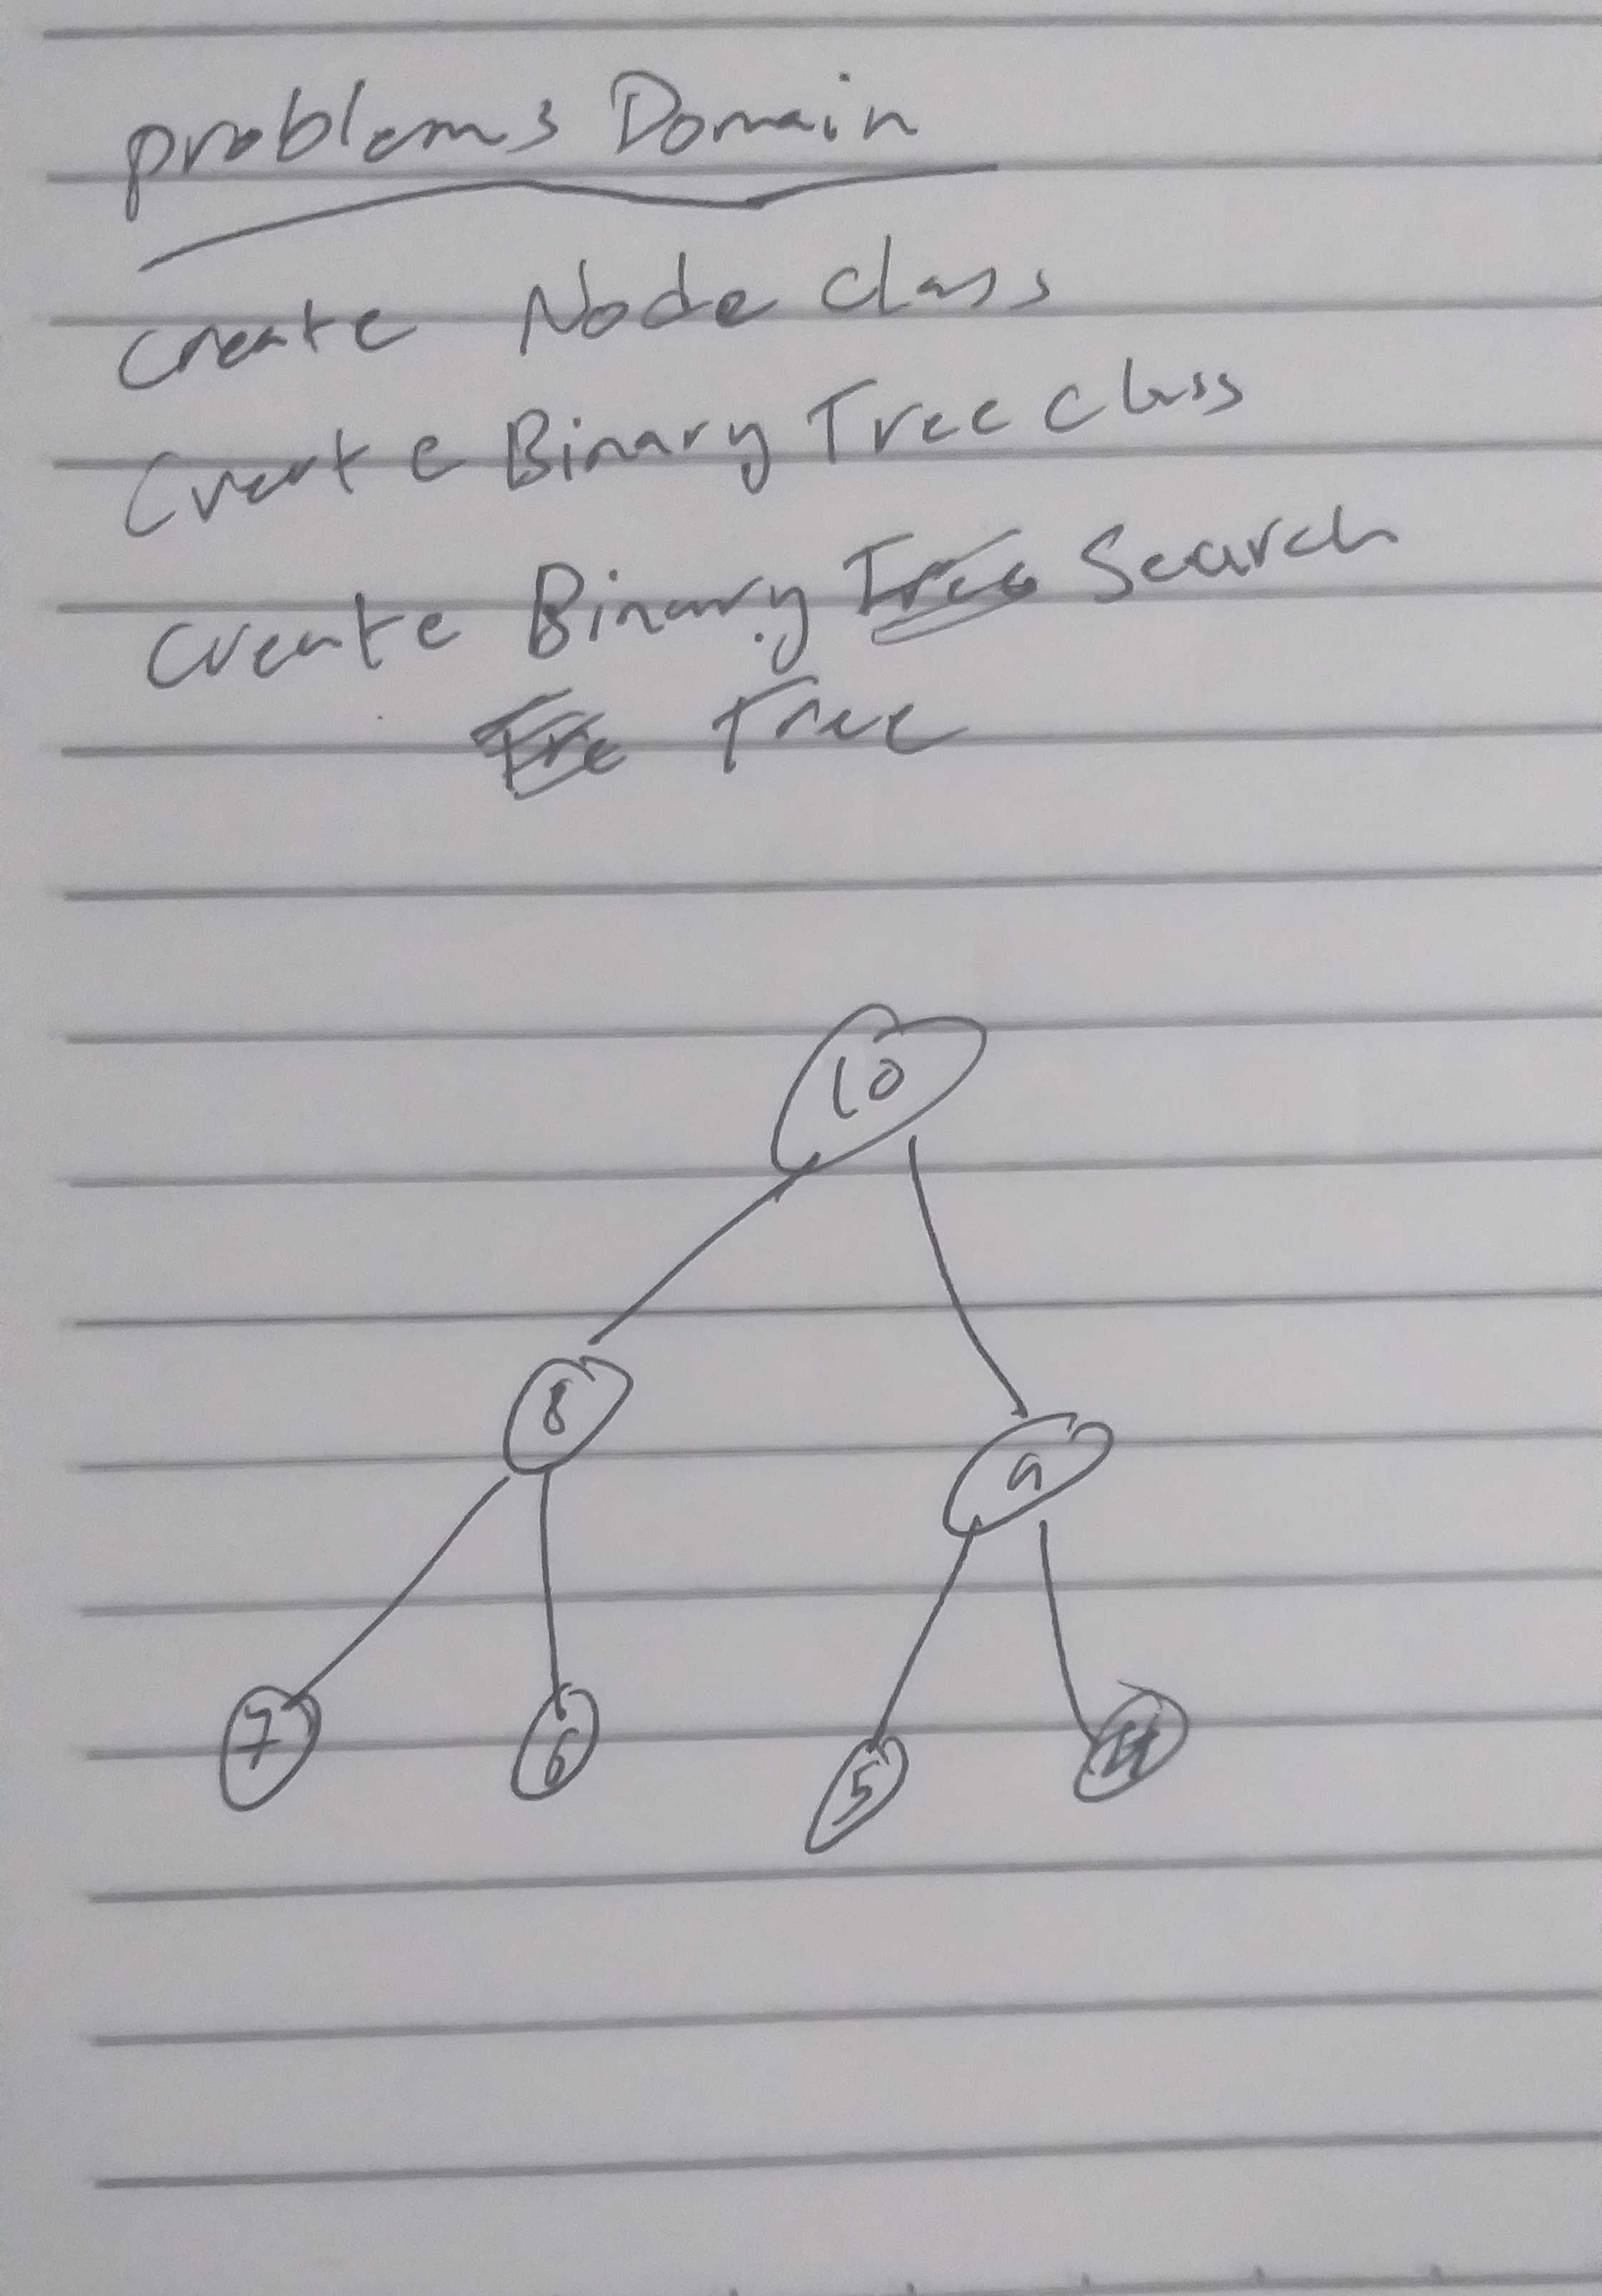 problems Domain
create Node class
Create Binary Tree class
create Binary Search
Tree
10
8
9
7 6 5